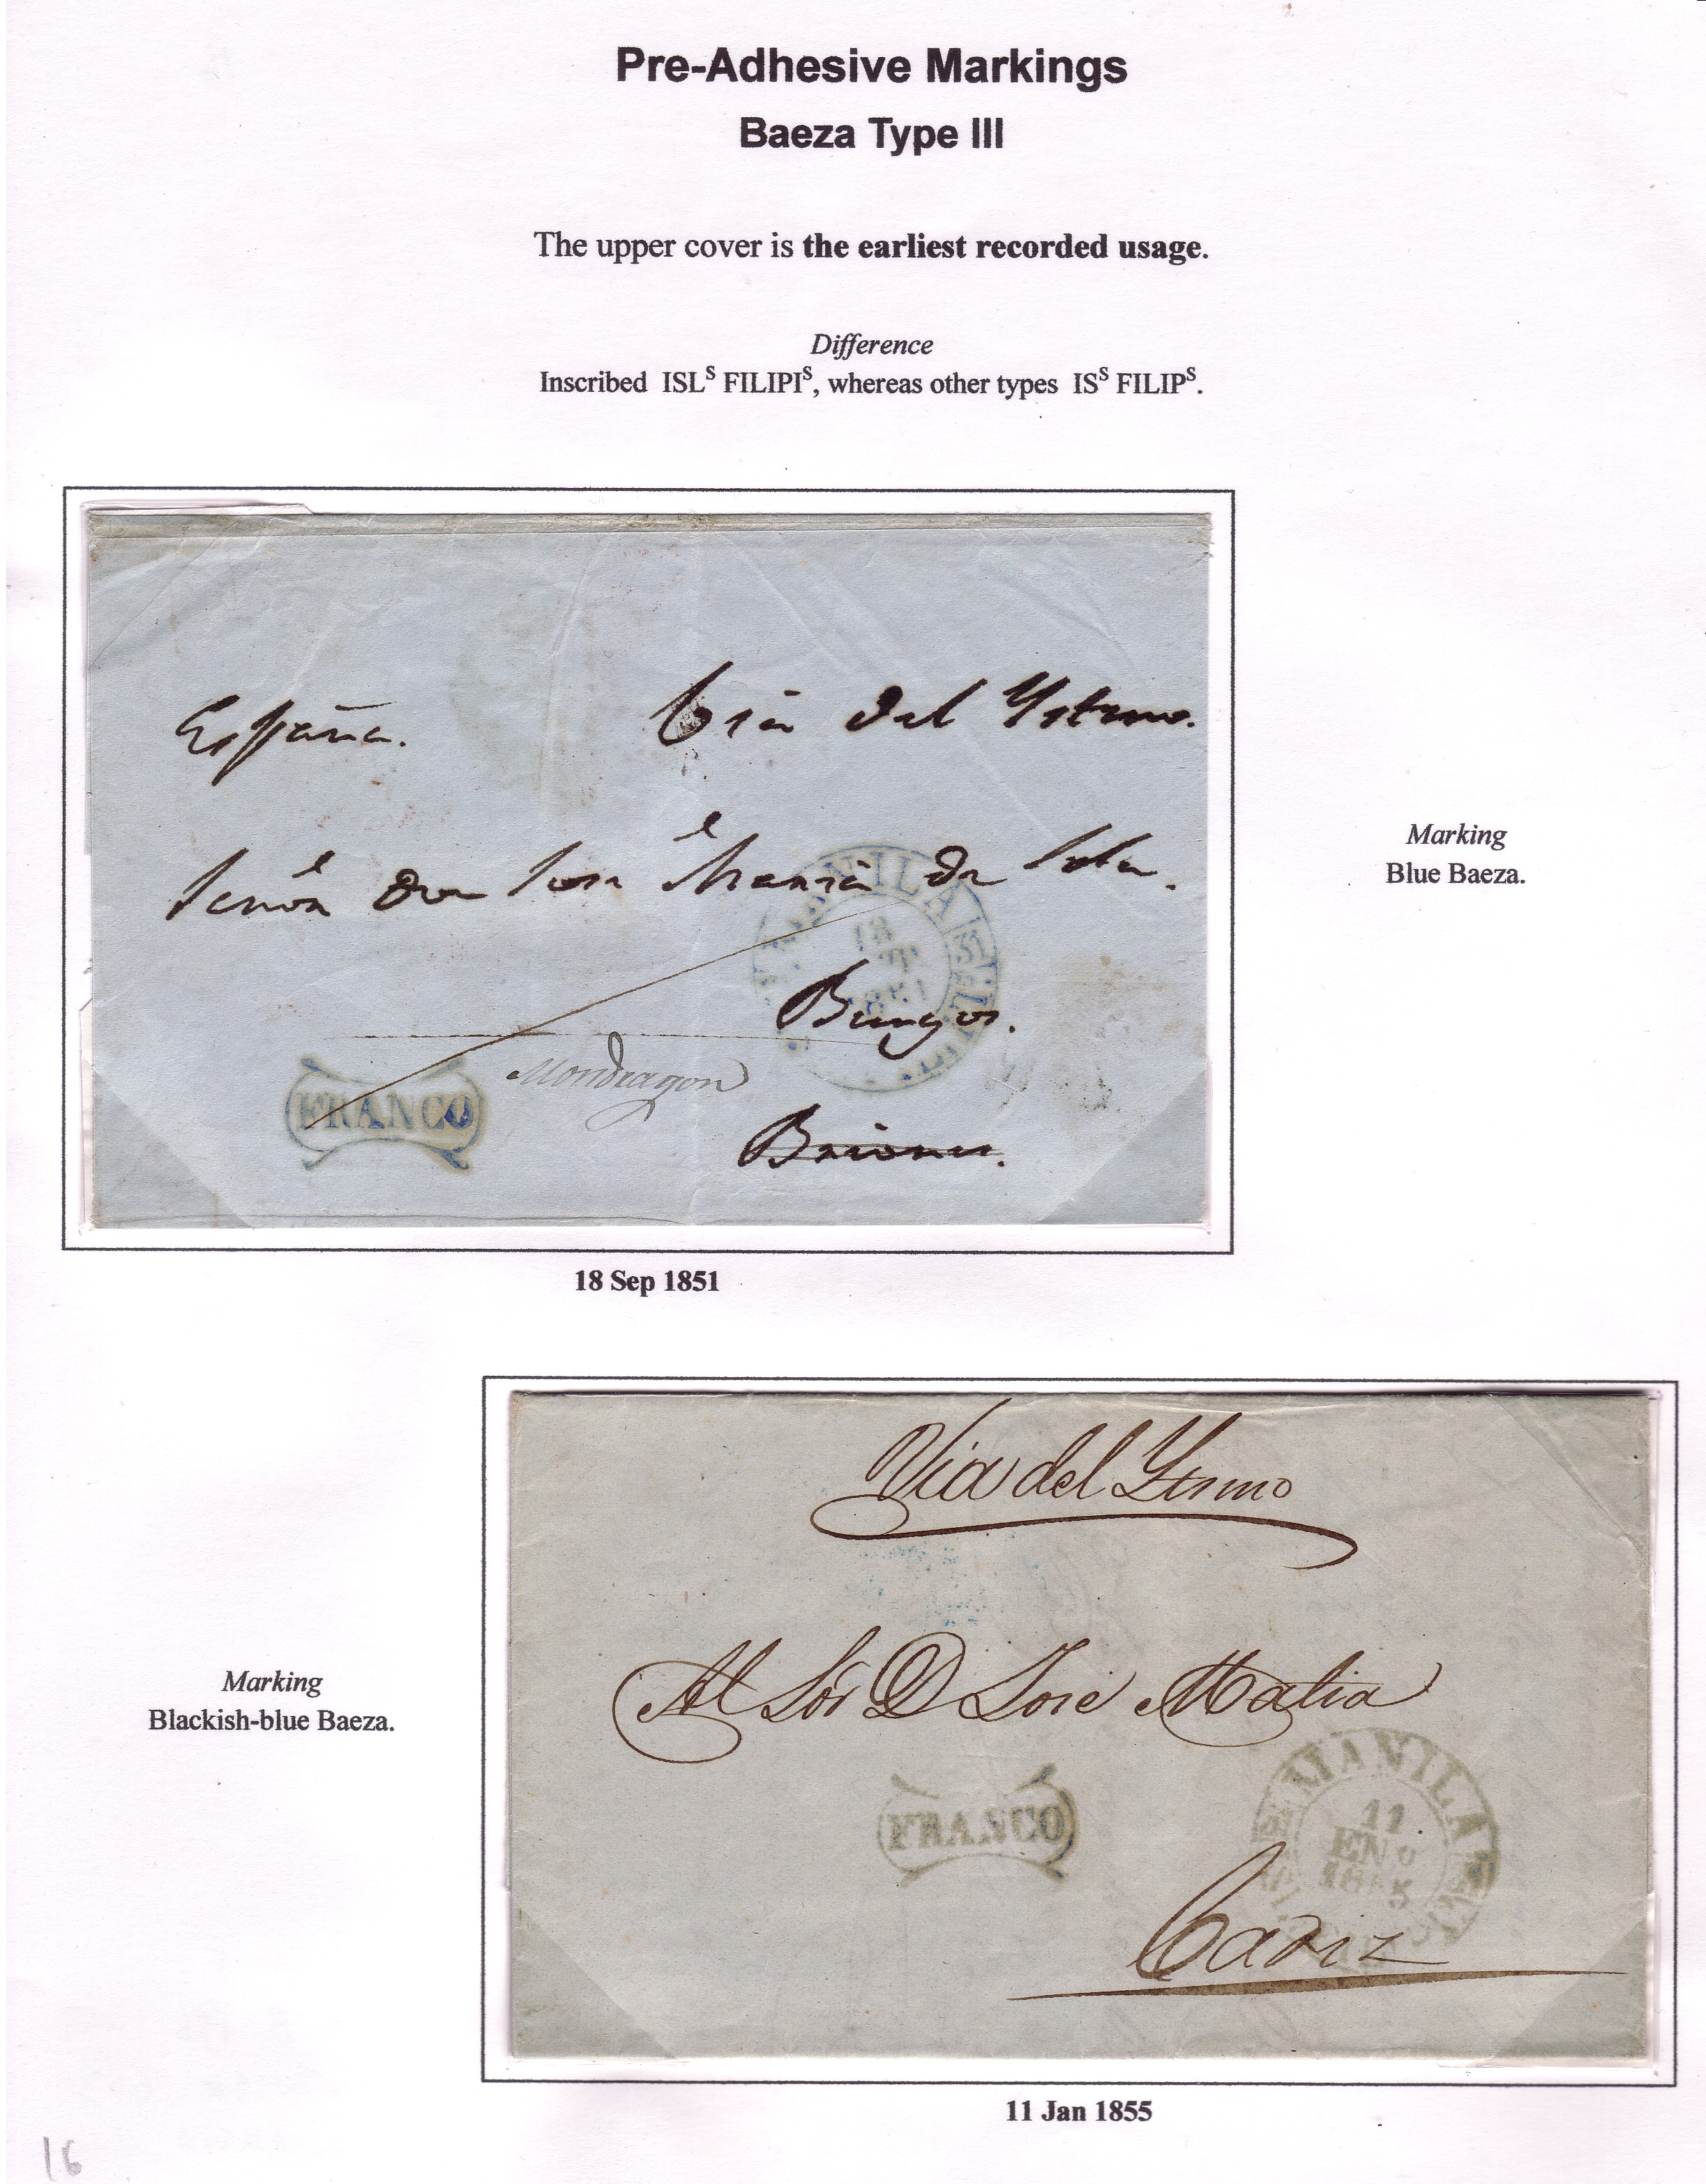 Pre-Adhesive Markings
Baeza Type III
The upper cover is the earliest recorded usage.
Difference
Inscribed ISLS FILIPIS, whereas other types ISS FILIPS.
España. Via del Ystmo.
Señor Don Jose Maria de
MANILA
18
31
Burgos.
Mondragon
FRANCO
Briones.
Marking
Blue Baeza.
18 Sep 1851
Via del Ysmo
Al Sor D Jose Matia
FRANCO
MANILA
11
ENO
Cadiz
Marking
Blackish-blue Baeza.
11 Jan 1855
16